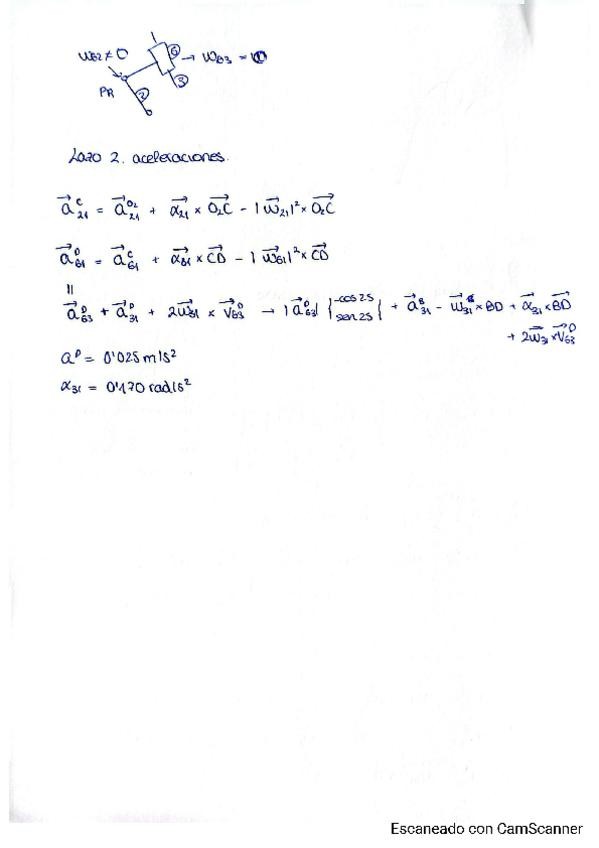 ω62≠0
6
→ ω63 = 0
3
PR
2
Lazo 2. aceleraciones.
a⃗²¹ᶜ = a⃗₂₁ᴼ² + α⃗₂₁ × O₂C⃗ - |ω⃗₂₁|² × O₂C⃗
a⃗₆₁ᴰ = a⃗₆₁ᶜ + α⃗₆₁ × CD⃗ - |ω⃗₆₁|² × CD⃗
||
a⃗₆₃ᴰ + a⃗₃₁ᴰ + 2ω⃗₃₁ × V⃗₆₃ᴰ → |a⃗₆₃ᴰ| {-cos 25 sen 25} + a⃗₃₁ᴮ - ω⃗₃₁² × BD + α⃗₃₁ × BD⃗
+ 2ω⃗₃₁ × V⃗₆₃ᴰ
aᴰ = 0'025 m/s²
α₃₁ = 0'170 rad/s²
Escaneado con CamScanner